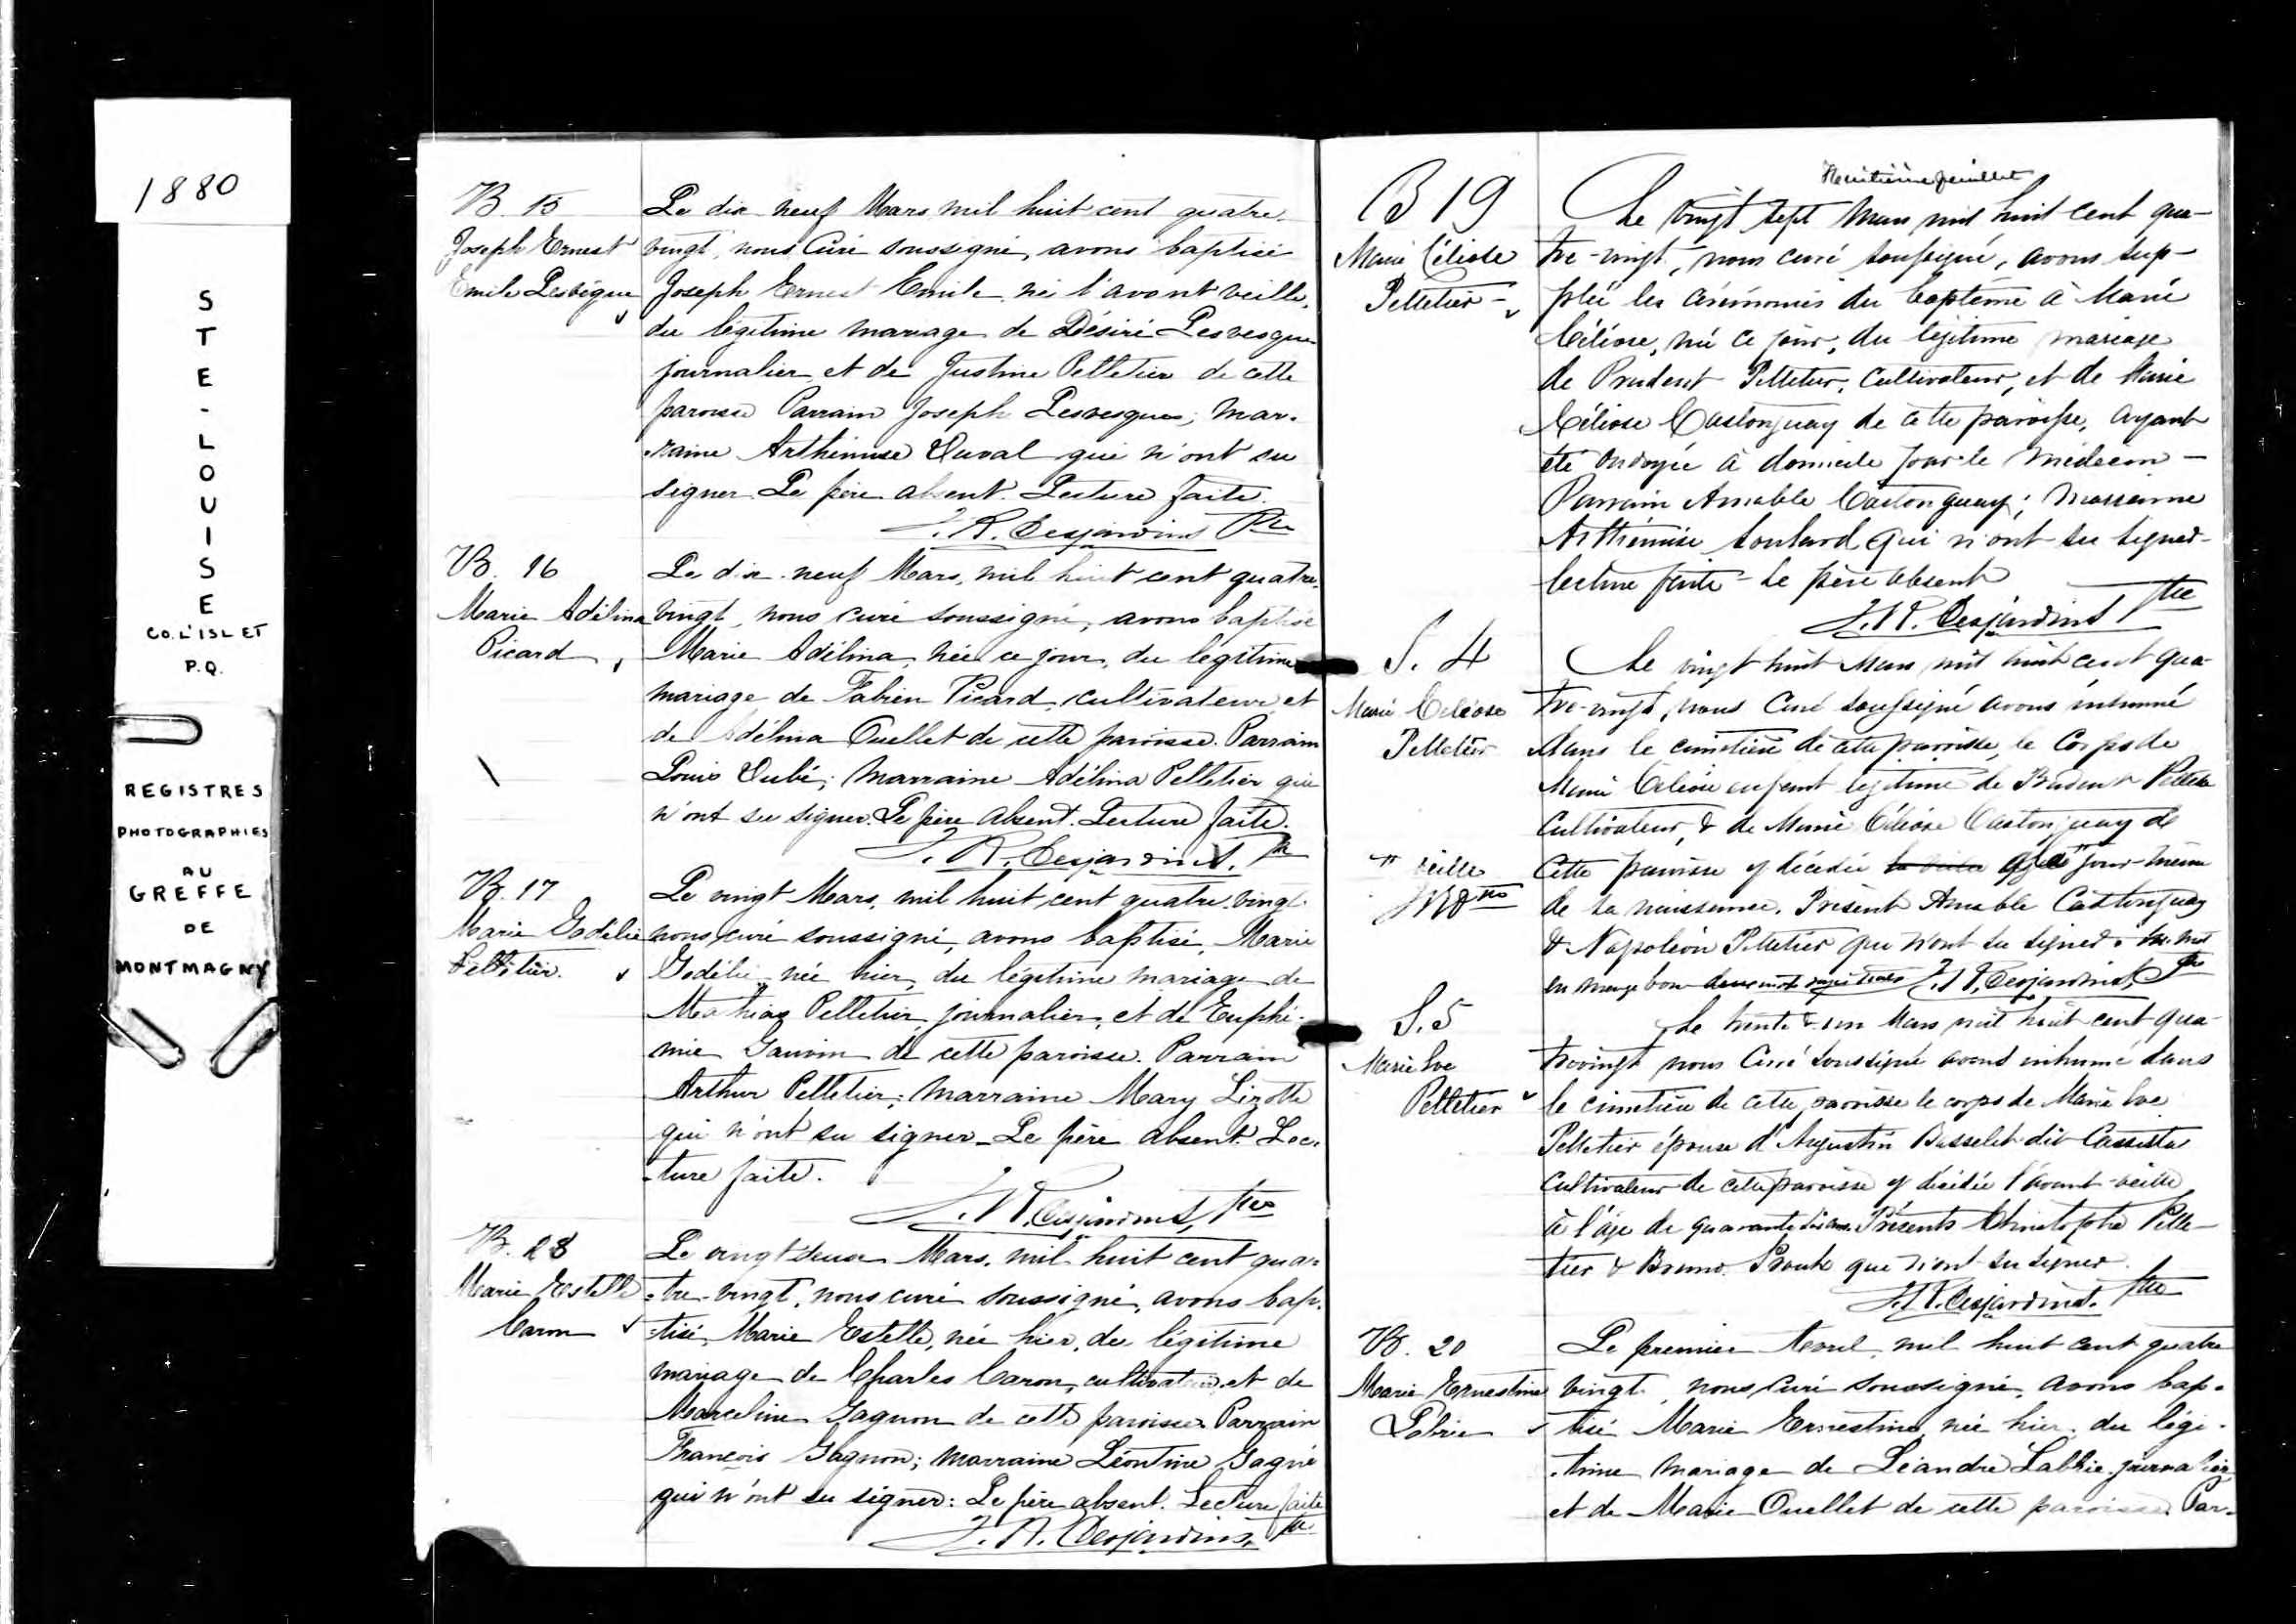 1880
STE-LOUISE
CO. L'ISLET
P.Q.
REGISTRES
PHOTOGRAPHIES
AU
GREFFE
DE
MONTMAGNY
B. 15
Joseph Ernest
Emile Lesvêque
Le dix neuf Mars mil huit cent quatre-
vingt, nous Curé soussigné, avons baptisé
Joseph Ernest Emile, né l'avant veille,
du légitime mariage de Désiré Lesvesque
journalier, et de Justine Pelletier de cette
paroisse Parrain Joseph Lesvesques; mar-
raine Arthémise Duval qui n'ont su
signer. Le père absent. Lecture faite.
Desjardins Ptre
B. 16
Marie Adélina
Picard
Le dix-neuf Mars, mil huit cent quatre-
vingt, nous curé soussigné, avons baptisé
Marie Adélina, née ce jour, du légitime
mariage de Fabien Picard, cultivateur, et
de Adélina Ouellet de cette paroisse. Parrain
Louis Dubé; marraine Adélina Pelletier qui
n'ont su signer. Le père absent. Lecture faite.
Desjardins, Ptre
B. 17
Marie Godélie
Pelletier.
Le vingt Mars, mil huit cent quatre vingt
nous curé soussigné, avons baptisé, Marie
Godélie, née hier, du légitime mariage de
Mathias Pelletier, journalier, et de Euphé-
mie Gauvin de cette paroisse. Parrain
Arthur Pelletier; marraine Mary Lizotte
qui n'ont su signer_Le père absent. Lec-
-ture faite.
Desjardins, Ptre
B. 18
Marie Estelle
Caron
Le vingt deux Mars, mil huit cent qua-
-tre-vingt, nous curé soussigné, avons bap-
-tisé, Marie Estelle, née hier, du légitime
mariage de Charles Caron, cultivateur, et de
Marceline Gagnon de cette paroisse. Parrain
François Gagnon; marraine Léontine Gagné
qui n'ont su signer: Le père absent. Lecture faite
Desjardins, Ptre
Huitième feuillet
B 19
Marie Céliose
Pelletier-
Le vingt sept Mars mil huit cent qua-
tre-vingt, nous curé soussigné, avons sup-
pléé les cérémonies du baptême à Marie
Céliose, née ce jour, du légitime mariage
de Prudent Pelletier, Cultivateur, et de Marie
Céliose Castonguay de cette paroisse, ayant
été ondoyée à domicile par le médecin-
Parrain Amable Castonguay; Marraine
Arthémise Soulard qui n'ont su signer-
lecture faite - Le père absent
Desjardins Ptre
S. 4
Marie Céliose
Pelletier
Le vingt huit Mars mil huit cent qua-
tre-vingt, nous Curé soussigné avons inhumé
dans le cimetière de cette paroisse, le Corps de
Marie Céliose enfant légitime de Prudent Pelletier
Cultivateur, & de Marie Céliose Castonguay de
" veille
Cette paroisse y décédée jour-même
de sa naissance. Présents Amable Castonguay
& Napoléon Pelletier qui n'ont su signer.
en marge bon Desjardins, Ptre
S. 5
Marie Eve
Pelletier
Le trente & un Mars mil huit cent qua-
tre vingt nous Curé soussigné avons inhumé dans
le cimetière de cette paroisse le corps de Marie Eve
Pelletier épouse d'Augustin Asselin dit Cassista
Cultivateur de cette paroisse y décédée l'avant-veille
à l'âge de quarante Présents Christophe Pelle-
tier & Bruno qui n'ont su signer.
Desjardins. Ptre
B. 20
Marie Ernestine
Labrie
Le premier Avril, mil huit cent quatre
vingt, nous curé soussigné, avons bap-
tisé Marie Ernestine, née hier, du légi-
-time mariage de Léandre Labrie journalier
et de Marie Ouellet de cette paroisse. Par-